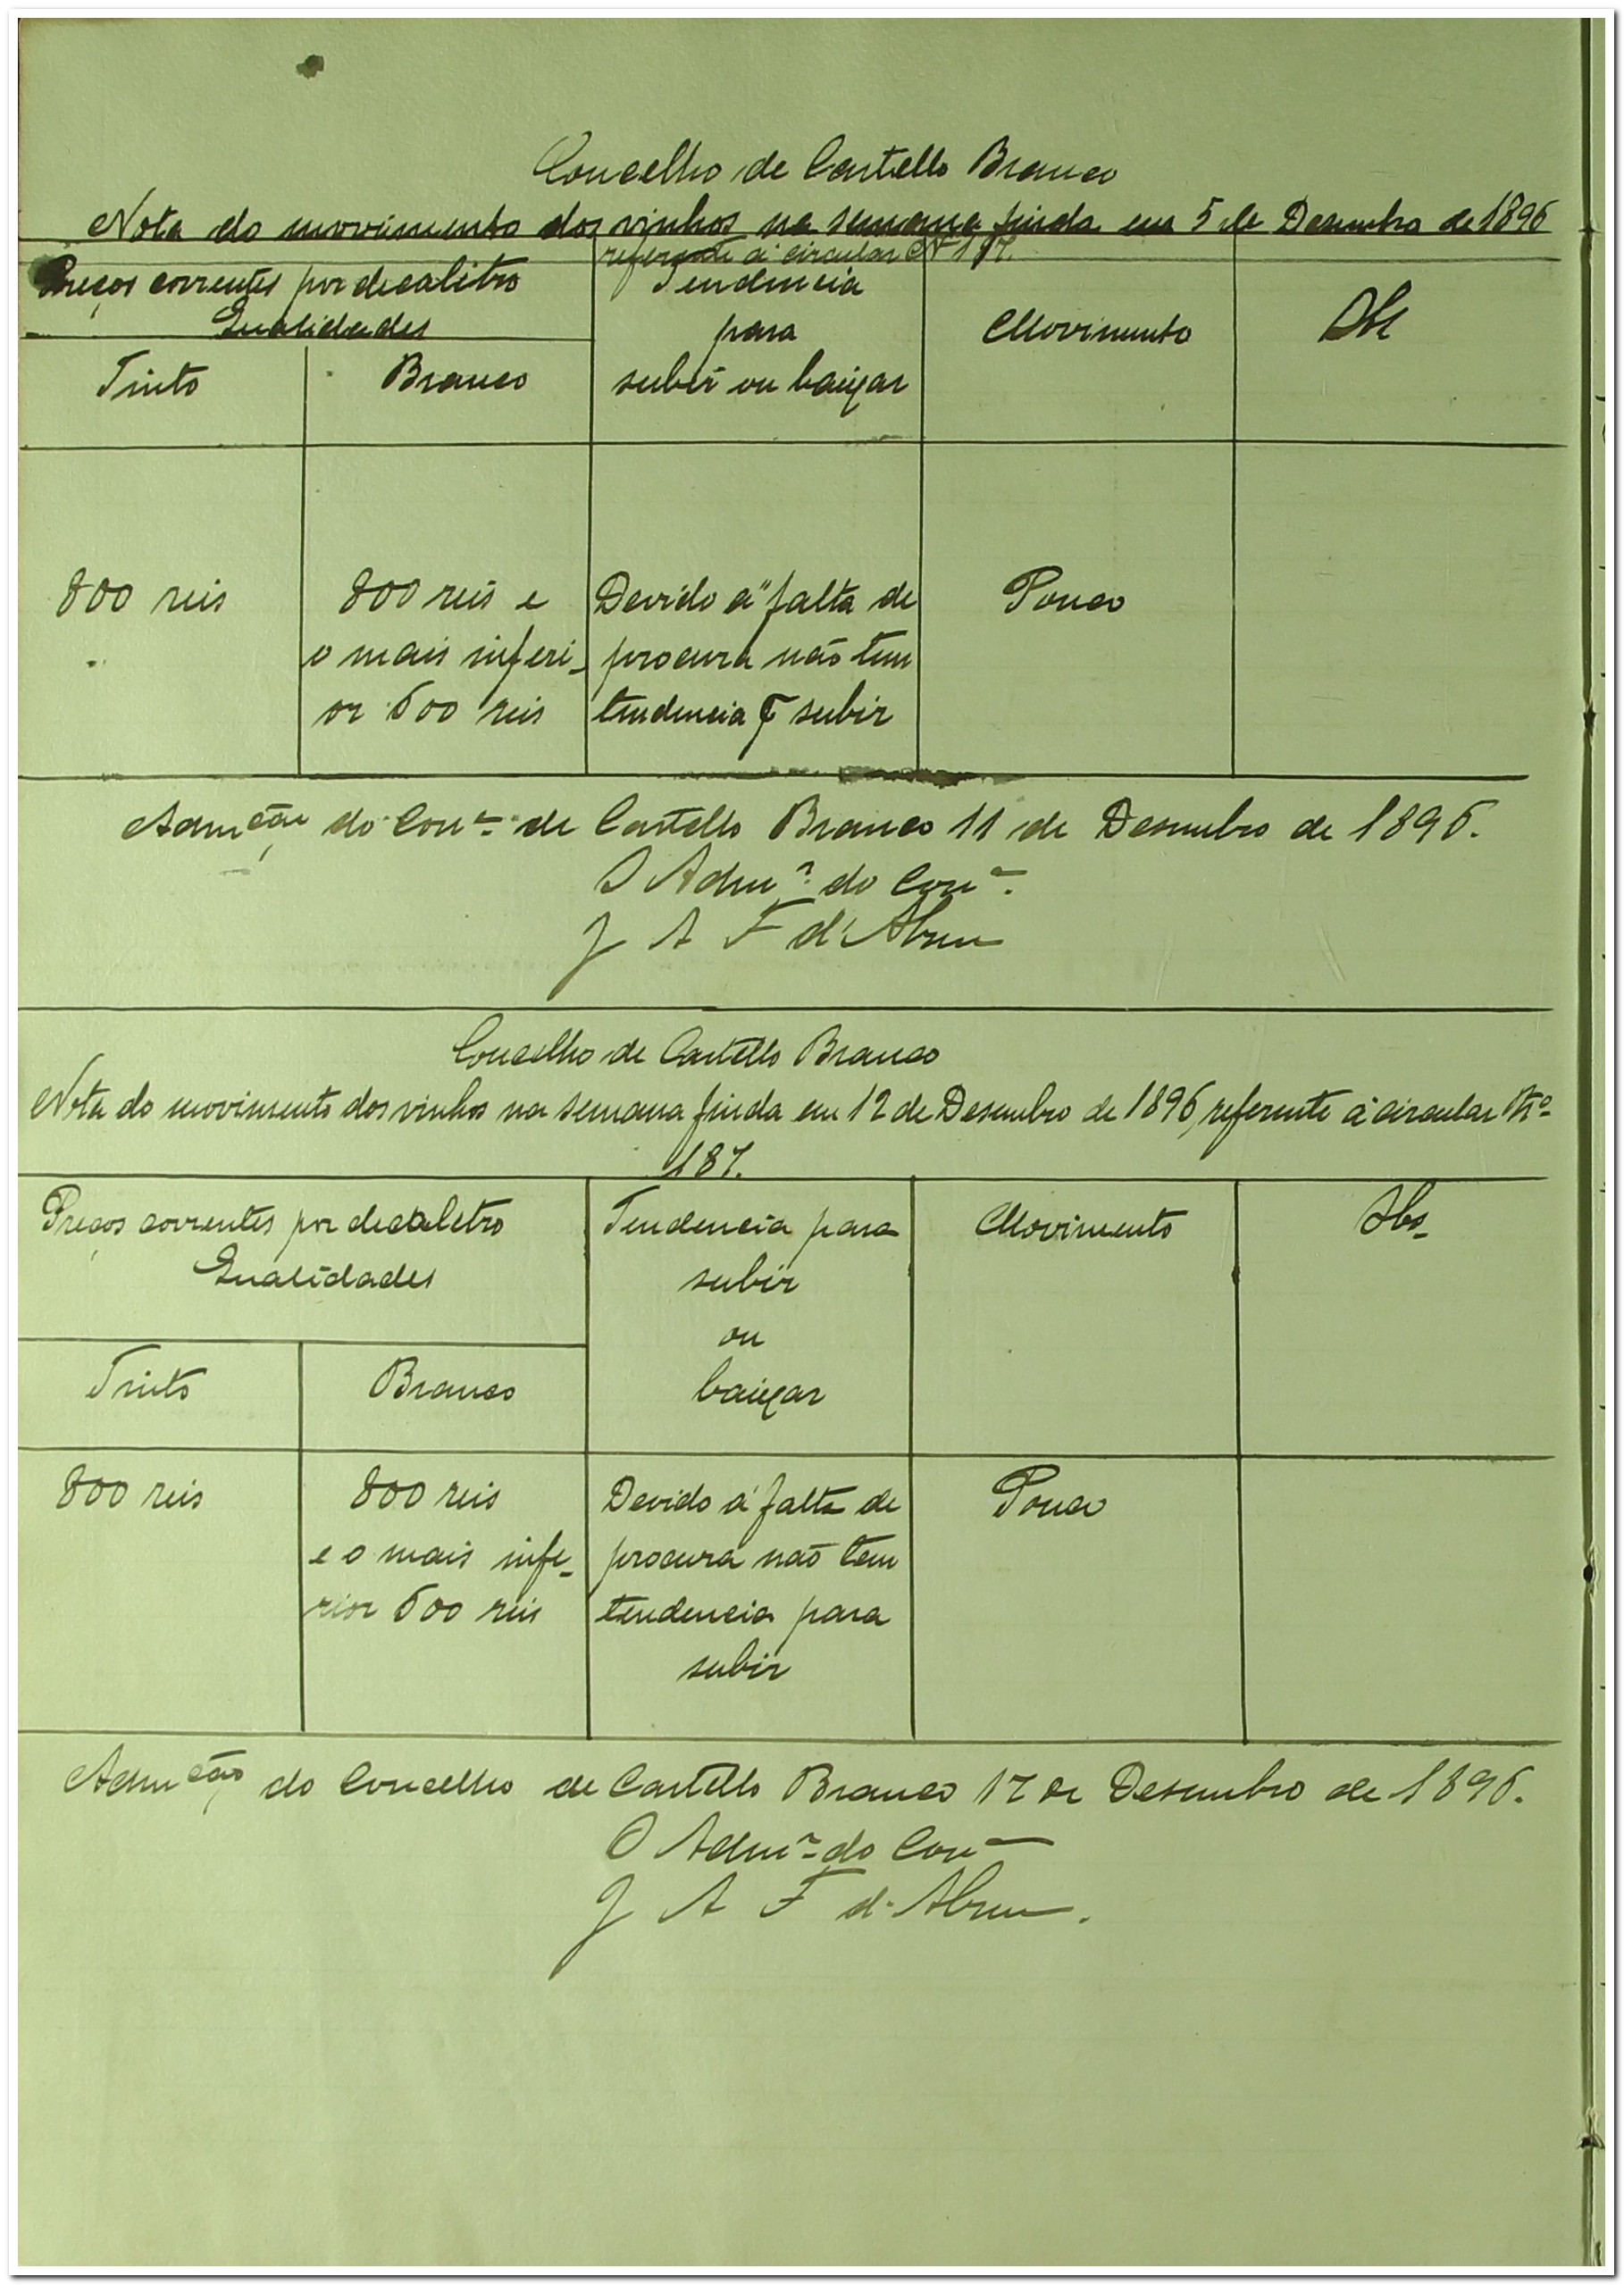 Concelho de Castello Branco
Nota do movimento dos vinhos na semana finda em 5 de Desembro de 1896
referente á circular Nº 187.
Preços correntes por decalitro
Qualidades
Tinto
Branco
Tendencia
para
subir ou baixar
Movimento
Obs
800 reis
800 reis e
o mais inferi-
or 600 reis
Devido á falta de
procura não tem
tendencia p subir
Pouco
Admção do Conº de Castello Branco 11 de Desembro de 1896.
O Admor do Conº.
J A F d'Abreu
Concelho de Castello Branco
Nota do movimento dos vinhos na semana finda em 12 de Desembro de 1896, referente á circular Nº
187.
Preços correntes por decalitro
Qualidades
Tinto
Branco
Tendencia para
subir
ou
baixar
Movimento
Obs
800 reis
800 reis
e o mais infe-
rior 600 reis
Devido á falta de
procura não tem
tendencia para
subir
Pouco
Admção do Concelho de Castello Branco 17 de Desembro de 1896.
O Admor do Conº
J A F d'Abreu.